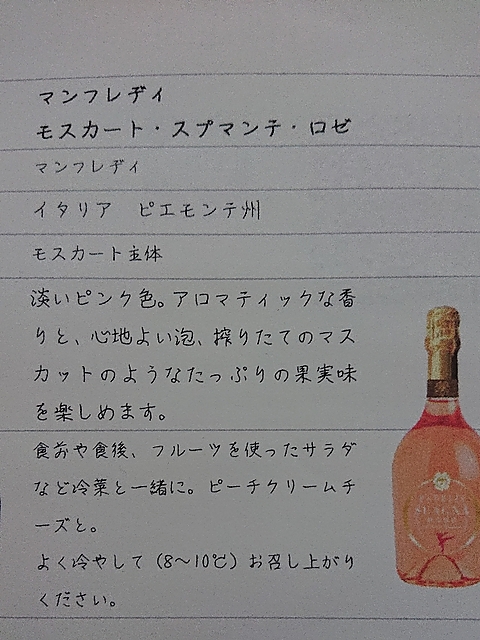 マンフレディ
モスカート・スプマンテ・ロゼ
マンフレディ
イタリア　ピエモンテ州
モスカート主体
淡いピンク色。アロマティックな香
りと、心地よい泡、搾りたてのマス
カットのようなたっぷりの果実味
を楽しめます。
食前や食後、フルーツを使ったサラダ
など冷菜と一緒に。ピーチクリームチ
ーズと。
よく冷やして（8～10℃）お召し上がり
ください。